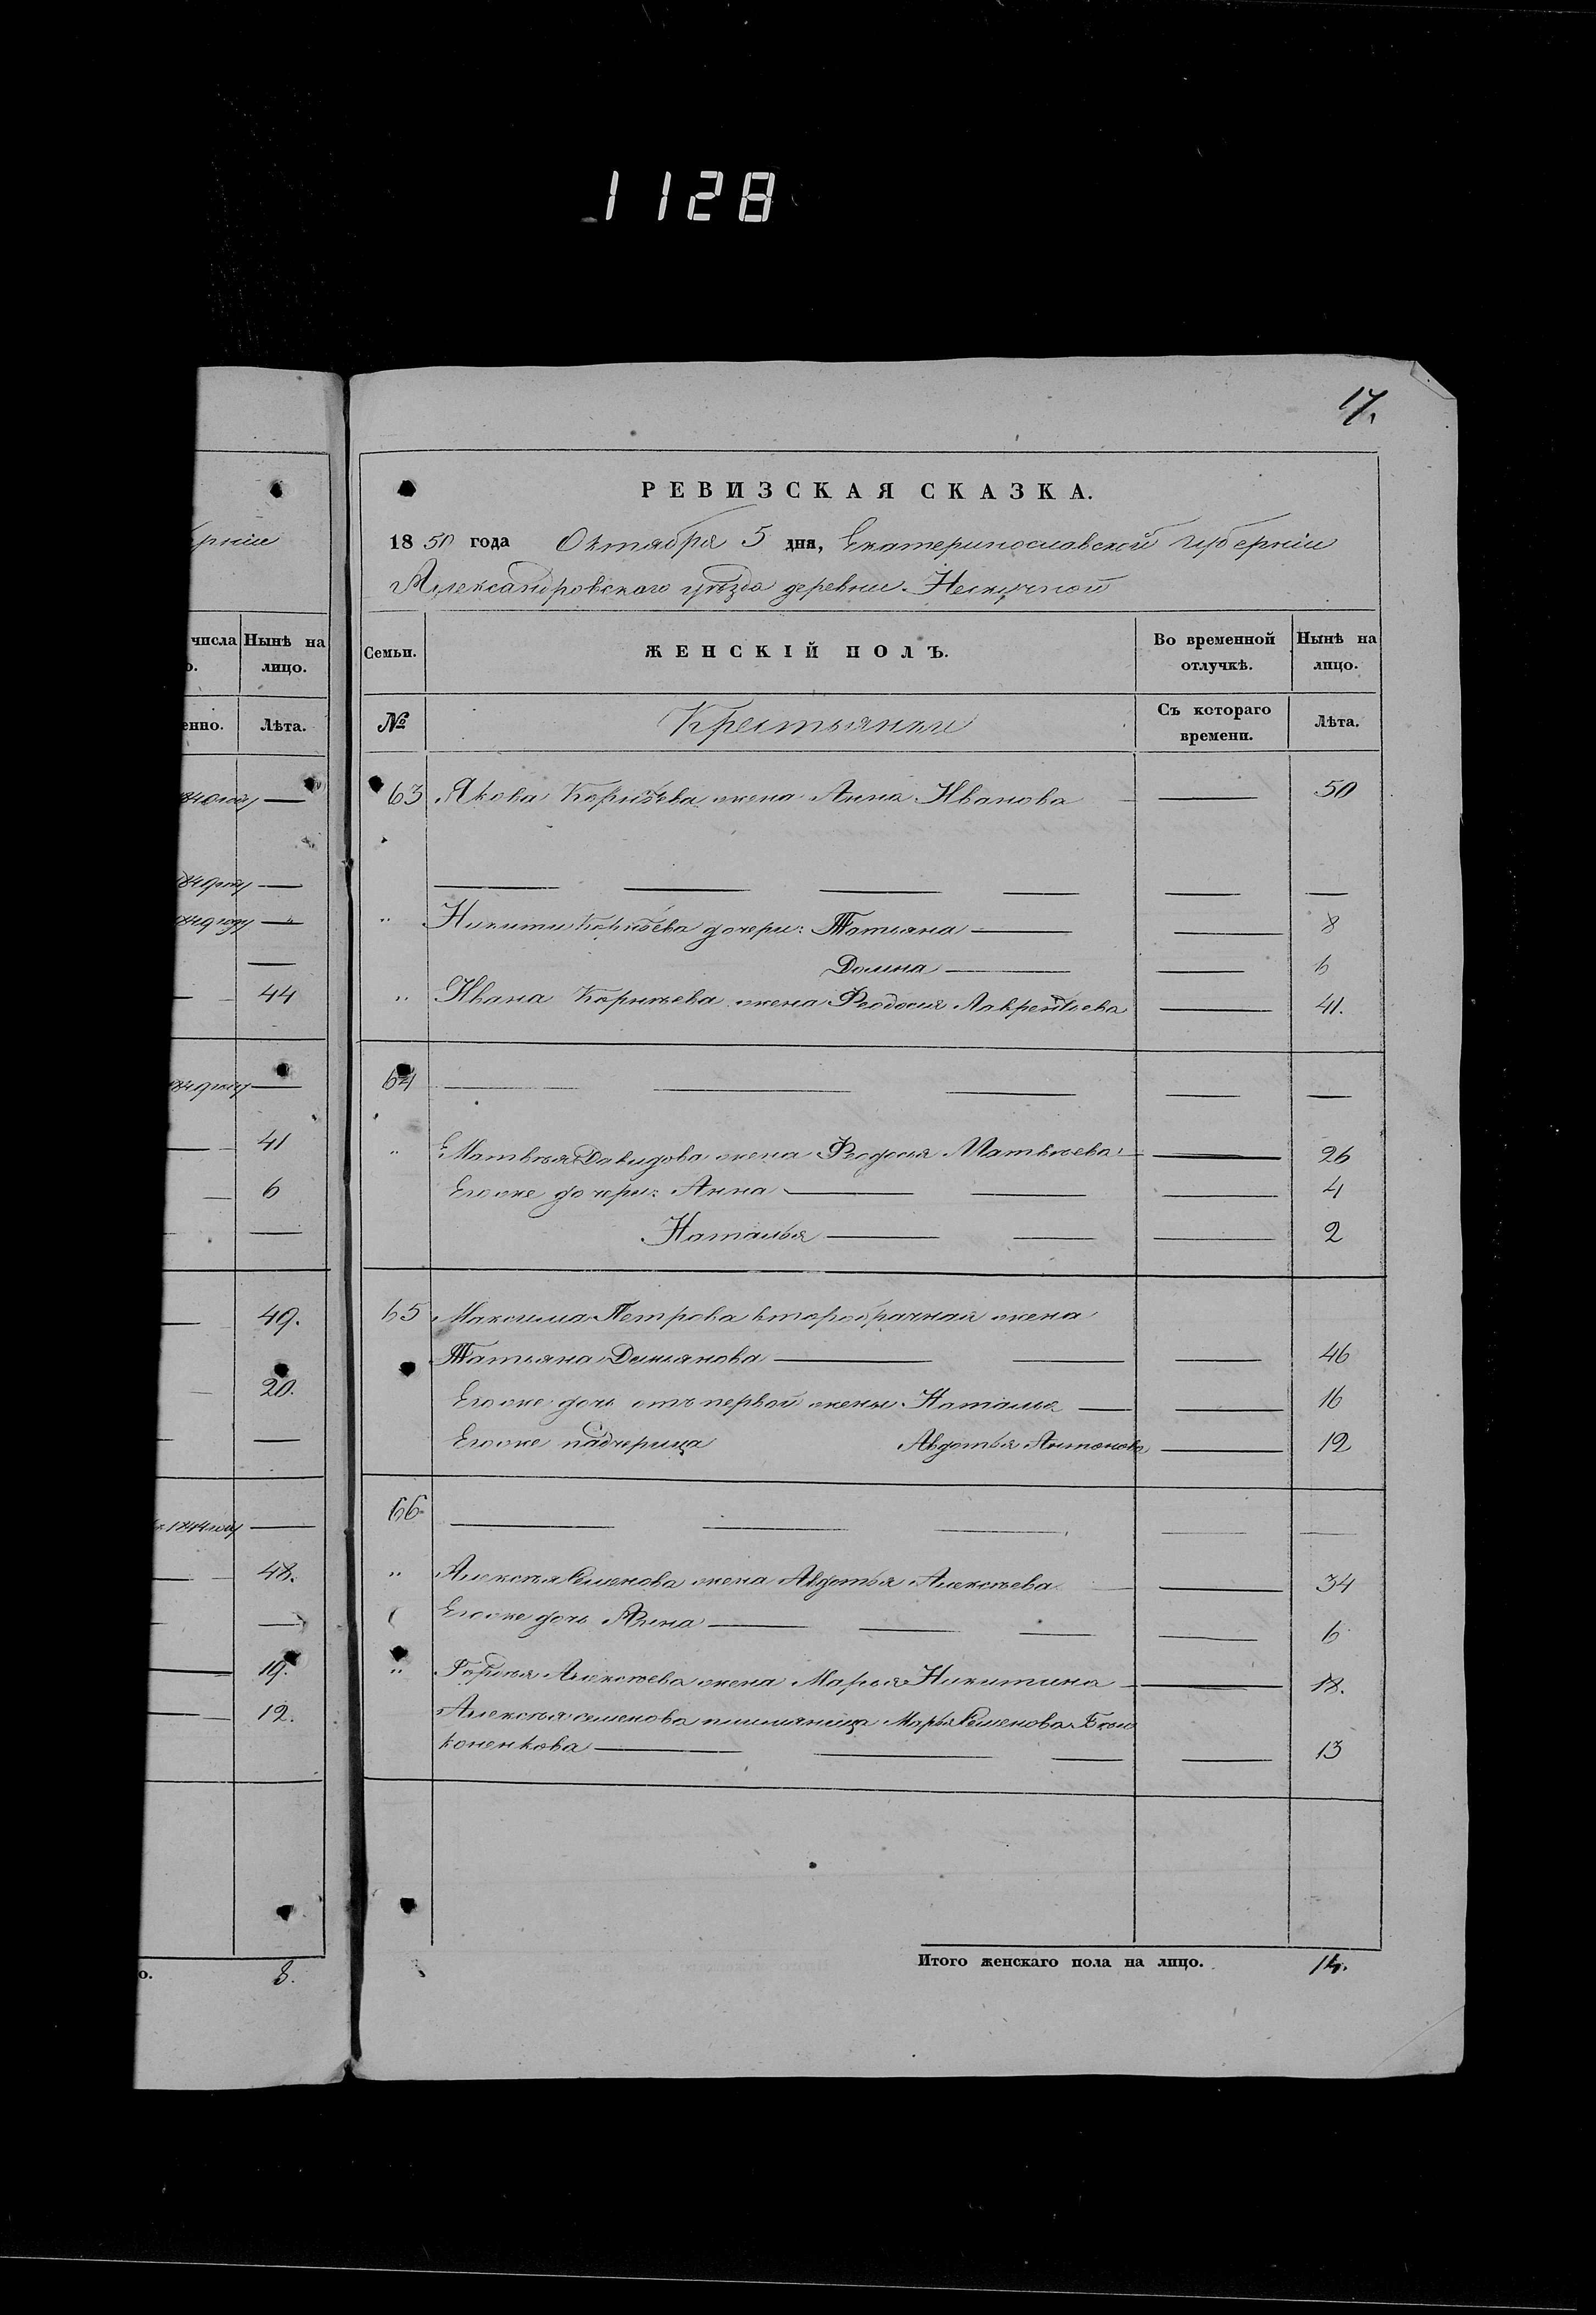 1128
17.
рніи
РЕВИЗСКАЯ СКАЗКА.
1850 года Октября 5 дня, Екатеринославской Губерніи
Александровскаго уѣзда деревни Нескучной
числа Нынѣ на лицо.
Семьи. ЖЕНСКІЙ ПОЛЪ. Во временной отлучкѣ. Нынѣ на лицо.
енно. Лѣта.
№ Крестьяньи Съ котораго времени. Лѣта.
63 Якова Корнѣева жена Анна Иванова 50
" Никиты Корнѣева дочери: Татіяна 8
Домна 6
44
" Ивана Корнѣева жена Феодосія Лаврентьева 41.
64
41
" Матвѣя Давидова жена Федосья Матвѣева 26
6
Его же дочери: Анна 4
Наталья 2
49.
65 Максима Петрова второбрачная жена
Татьяна Демьянова 46
20.
Его же дочь отъ первой жены Наталья 16
Его же падчерица Авдотья Антонова 12
1844 году
66
48.
" Алексѣя Семенова жена Авдотья Алексѣева 34
Его же дочь Анна 6
19.
" Гордѣя Алексѣева жена Марья Никитина 18.
12.
Алексѣя Семенова племяница Марья Семенова
коненкова 13
о. 8.
Итого женскаго пола на лицо. 14.